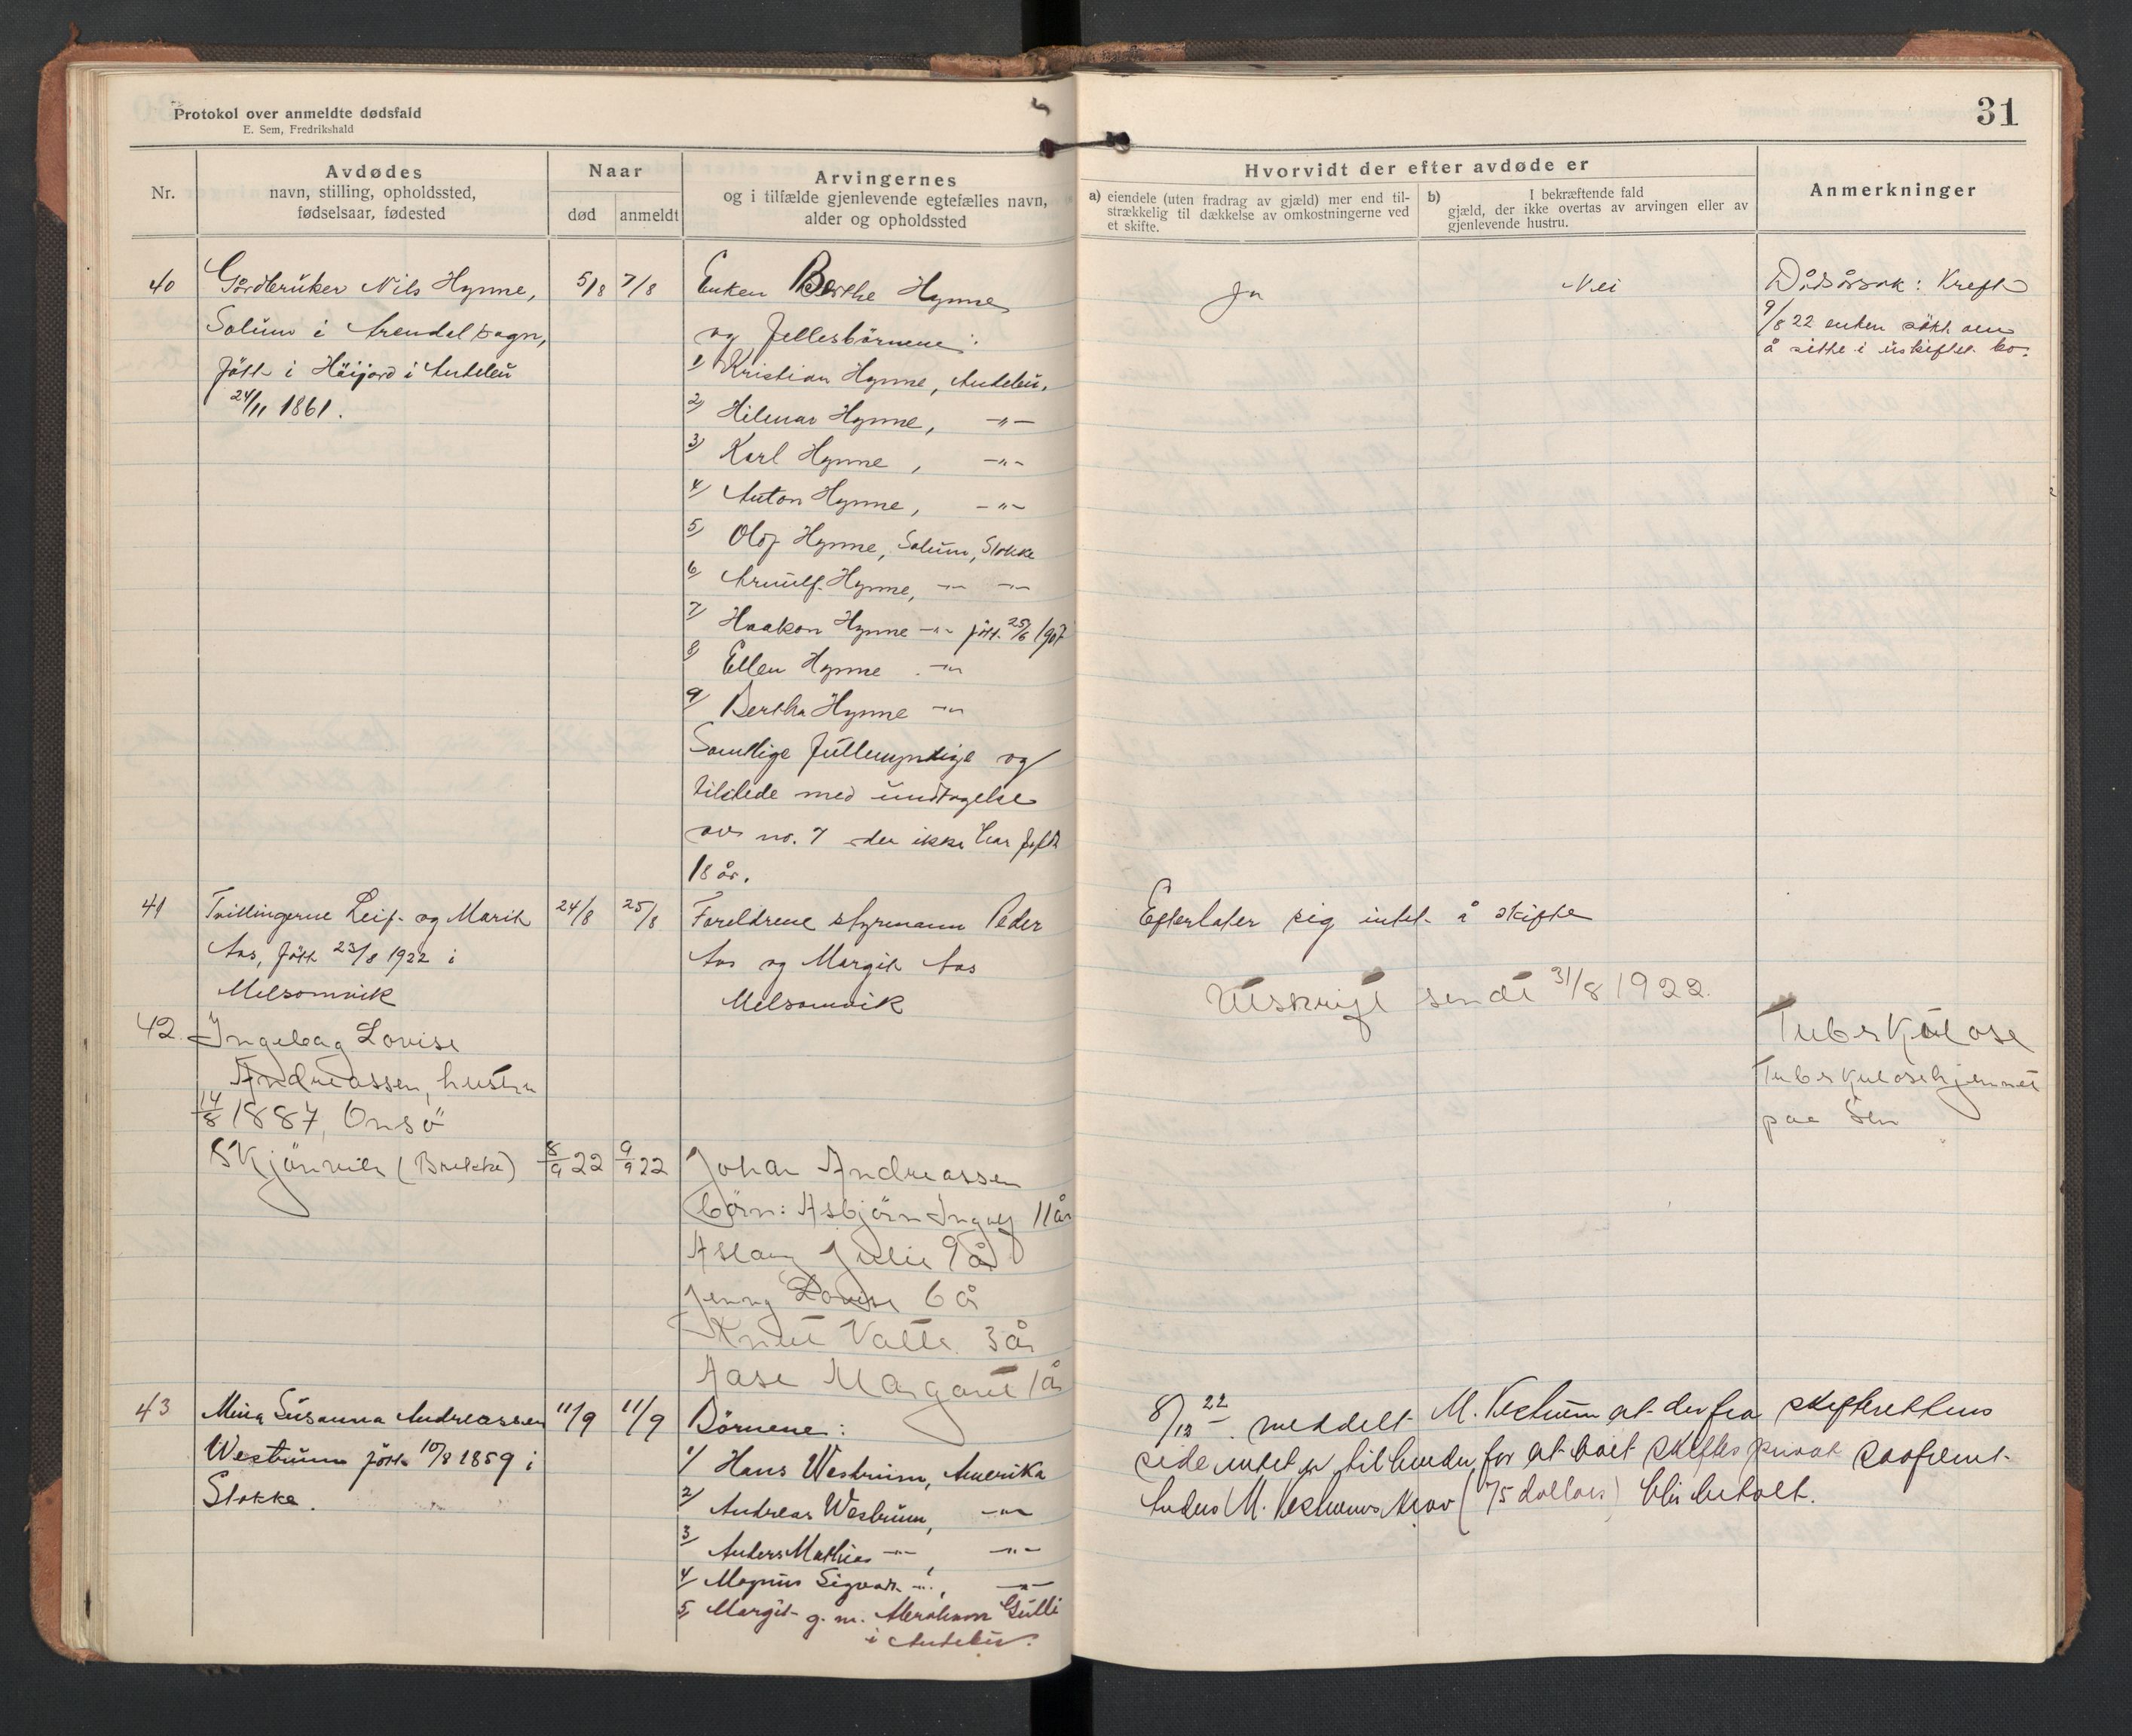 Protokol over anmeldte dødsfald
E. Sem, Fredrikshald
31
Nr.
Avdødes
navn, stilling, opholdssted,
fødselsaar, fødested
Naar
død
anmeldt
Arvingernes
og i tilfælde gjenlevende egtefælles navn,
alder og opholdssted
Hvorvidt der efter avdøde er
a) eiendele (uten fradrag av gjæld) mer end til-
strækkelig til dækkelse av omkostningerne ved
et skifte.
b) I bekræftende fald
gjæld, der ikke overtas av arvingen eller av
gjenlevende hustru.
Anmerkninger
40
Gårdbruker Nils Hynne,
Solum i Arendal sogn,
født i Höijord i Andebu
24/11 1861.
5/8
7/8
Enken Berthe Hynne
og fellesbörnene:
1/ Kristian Hynne, Andebu.
2/ Hilmar Hynne, -"-
3/ Karl Hynne, -"-
4/ Anton Hynne, -"-
5/ Olaf Hynne, Solum, Stokke
6/ Arnulf Hynne, -"- -"-
7/ Haakon Hynne -"- født 25/6 1907
8/ Ellen Hynne -"-
9/ Bertha Hynne -"-
Samtlige fullmyndige og
tilstede med undtagelse
av no. 7 der ikke har fylt
18 år.
Ja
Nei
Dödsårsak: Kreft
9/8 22 enken søkt om
å sitte i uskiftet bo.
41
Tvillingerne Leif og Marit
Aas, født 23/8 1922 i
Melsomvik
24/8
25/8
Foreldrene styrmann Peder
Aas og Margit Aas
Melsomvik
Efterlater sig intet å skifte
Utskrift sendt 31/8 1922.
42.
Ingebag Lovise
Andreassen, hustru
14/8 1887, Onsö
Skjönvik (Brekke)
8/9 22
9/9 22
Johan Andreassen
börn: Asbjörn Ingolf 11 år
Aslaug Julie 9 år
Jenny Lovise 6 år
Knut Valte. 3 år
Aase Margaret 1 år
Tuberkulose
Tuberkulosehjemmet
paa Sem
43
Mina Susanna Andreassen
Westrum født 10/8 1859 i
Stokke.
11/9
11/9
Börnene:
1/ Hans Westrum, Amerika
2/ Andreas Westrum, -"-
3/ Anders Mathias -"-, -"-
4/ Magnus Sigvart -"-, -"-
5/ Margit g. m. Abraham Gulli
i Andebu.
8/12 22. meddelt M. Vestrum at der fra skifterettens
side intet er til hinder for at boet skiftes privat saafremt
Anders M. Vestrums krav (75 dollars) blir betalt.